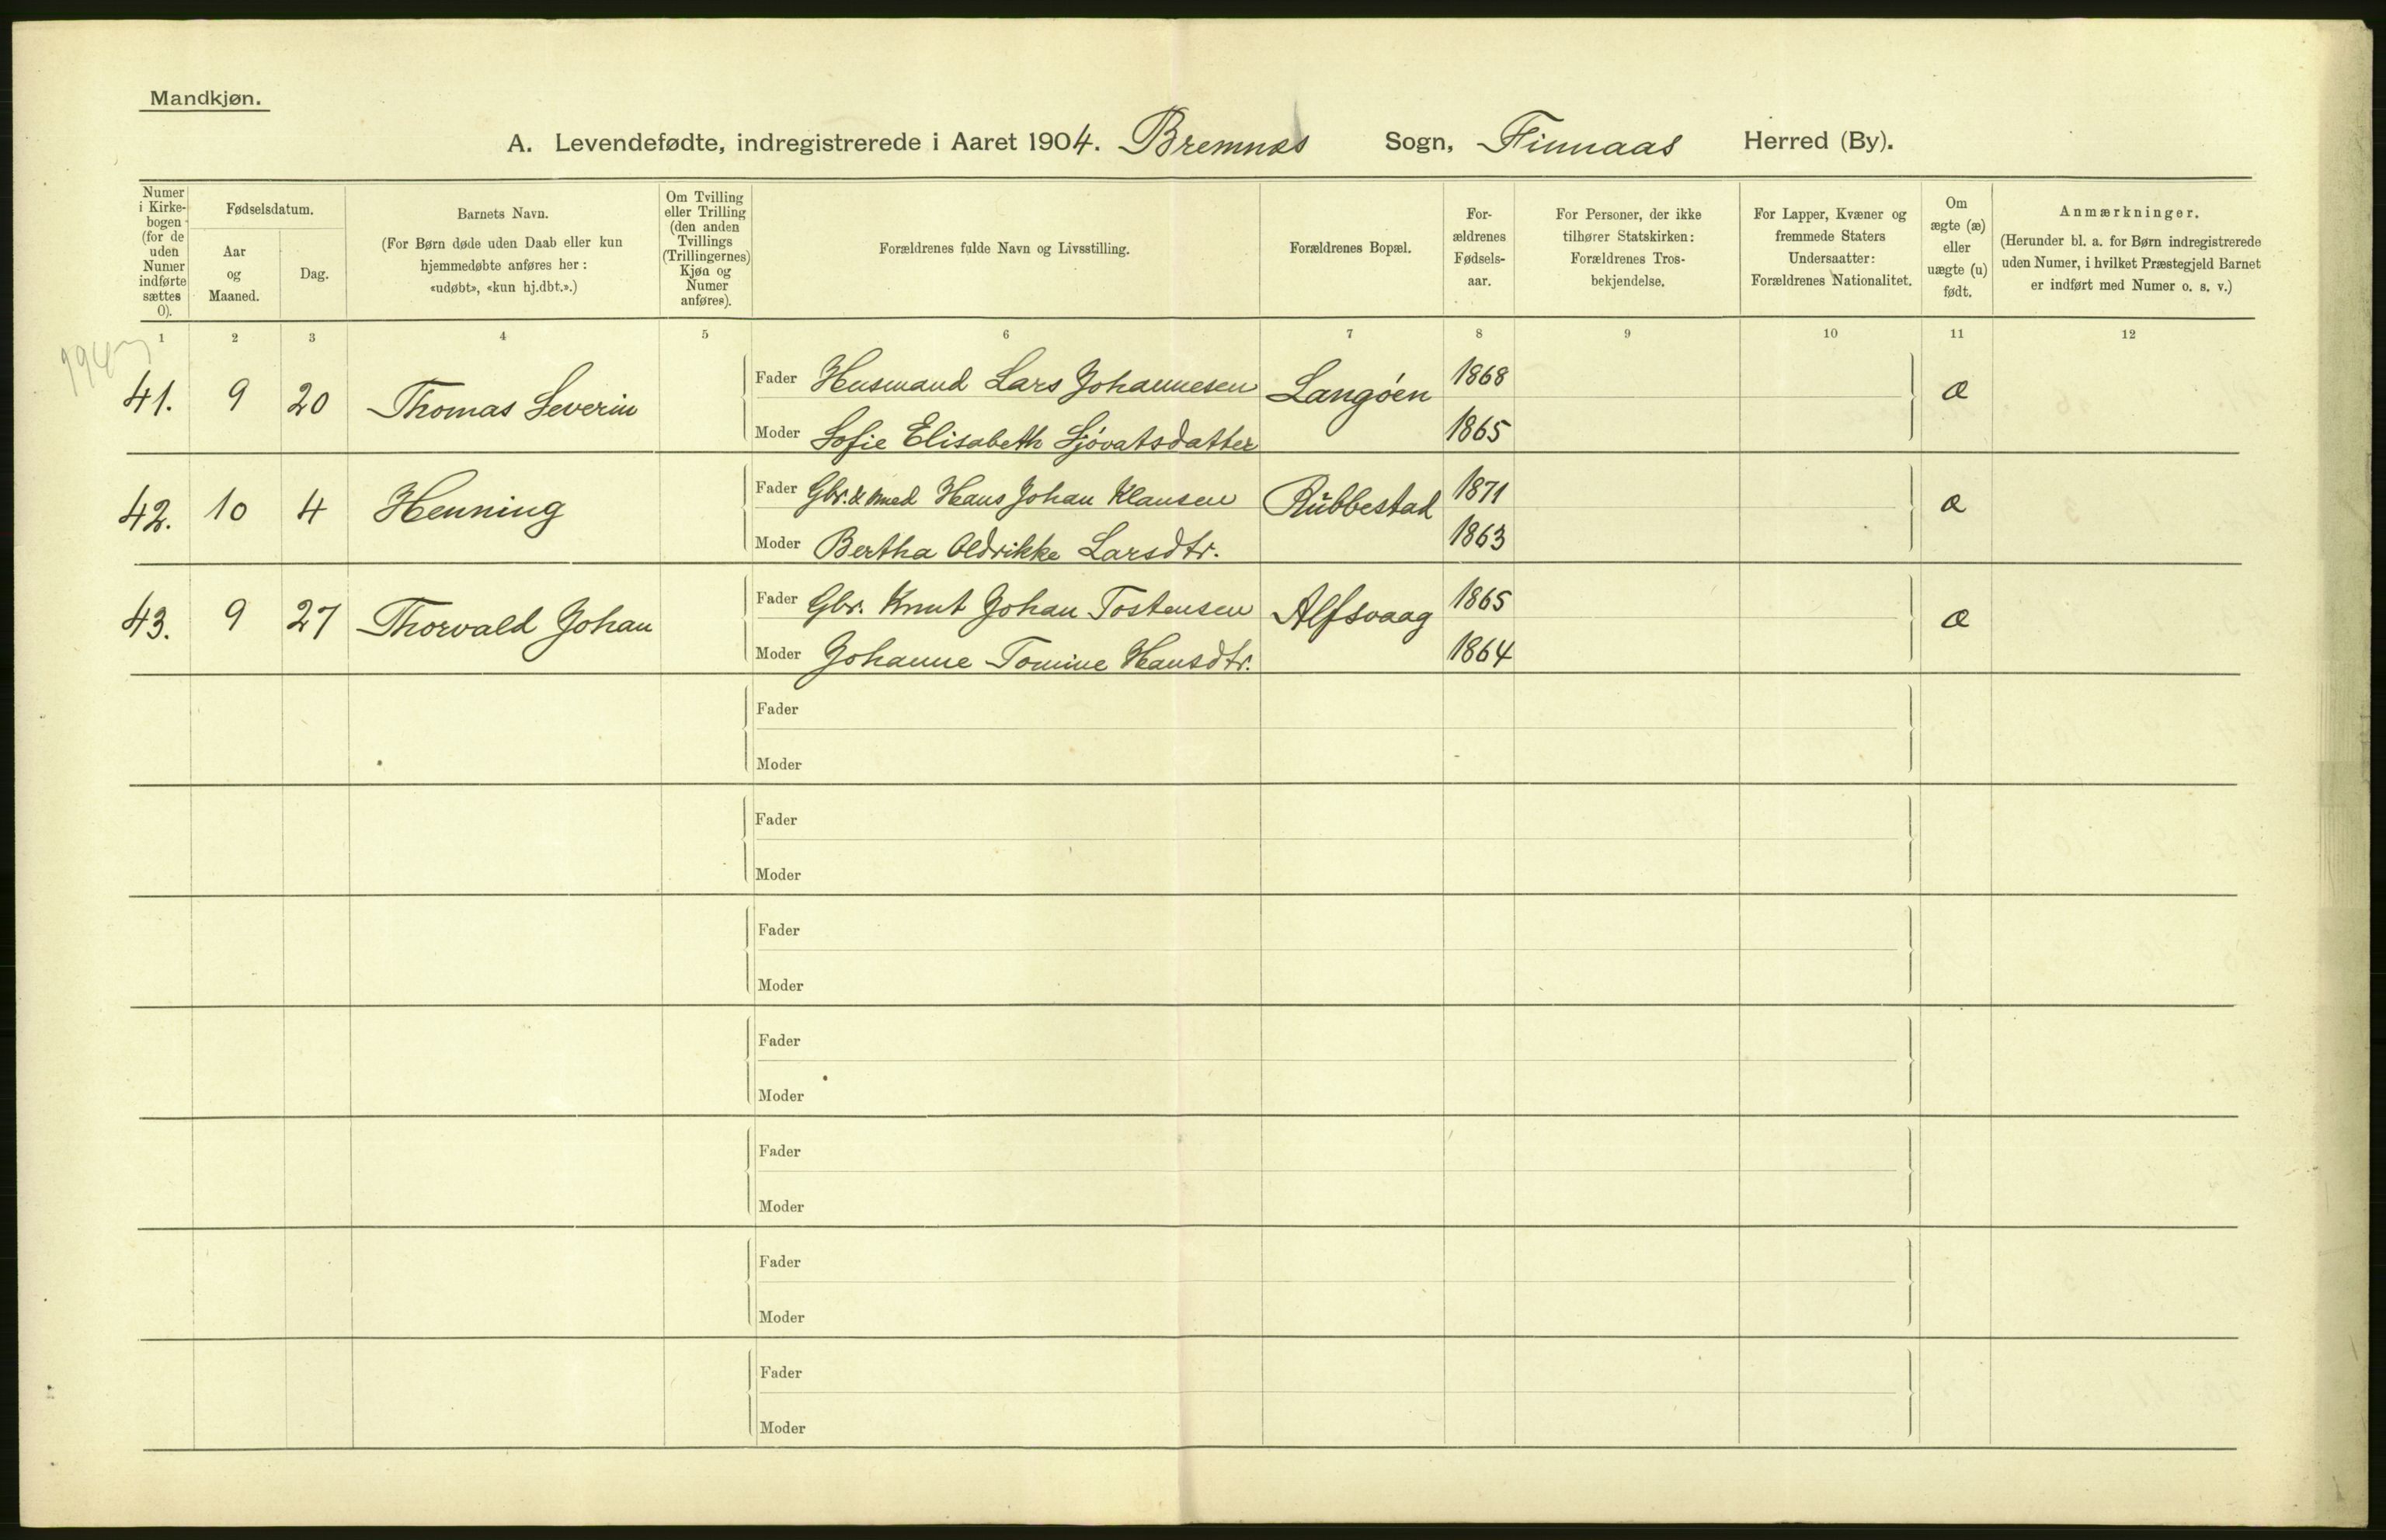 Mandkjøn.
A. Levendefødte, indregistrerede i Aaret 1904. Bremnæs Sogn, Finnaas Herred (By).
Numer i Kirkebogen (for de uden Numer indførte sættes 0).
Fødselsdatum.
Aar og Maaned.
Dag.
Barnets Navn.
(For Børn døde uden Daab eller kun hjemmedøbte anføres her: «udøbt», «kun hj.dbt.».)
Om Tvilling eller Trilling (den anden Tvillings (Trillingernes) Kjøn og Numer anføres).
Forældrenes fulde Navn og Livsstilling.
Forældrenes Bopæl.
Forældrenes Fødselsaar.
For Personer, der ikke tilhører Statskirken: Forældrenes Trosbekjendelse.
For Lapper, Kvæner og fremmede Staters Undersaatter: Forældrenes Nationalitet.
Om ægte (æ) eller uægte (u) født.
Anmærkninger.
(Herunder bl. a. for Børn indregistrerede uden Numer, i hvilket Præstegjeld Barnet er indført med Numer o. s. v.)
1 2 3 4 5 6 7 8 9 10 11 12
41. 9 20 Thomas Severin Fader Husmand Lars Johannesen Langöen 1868 æ
Moder Sofie Elisabeth Sjövatsdatter 1865
42. 10 4 Henning Fader Gbr. & smed Hans Johan Klausen Rŭbbestad 1871 æ
Moder Bertha Oldrikke Larsdtr. 1863
43. 9 27 Thorvald Johan Fader Gbr. Knut Johan Tostensen Alfsvaag 1865 æ
Moder Johanne Tomine Hansdtr. 1864
Fader
Moder
Fader
Moder
Fader
Moder
Fader
Moder
Fader
Moder
Fader
Moder
Fader
Moder